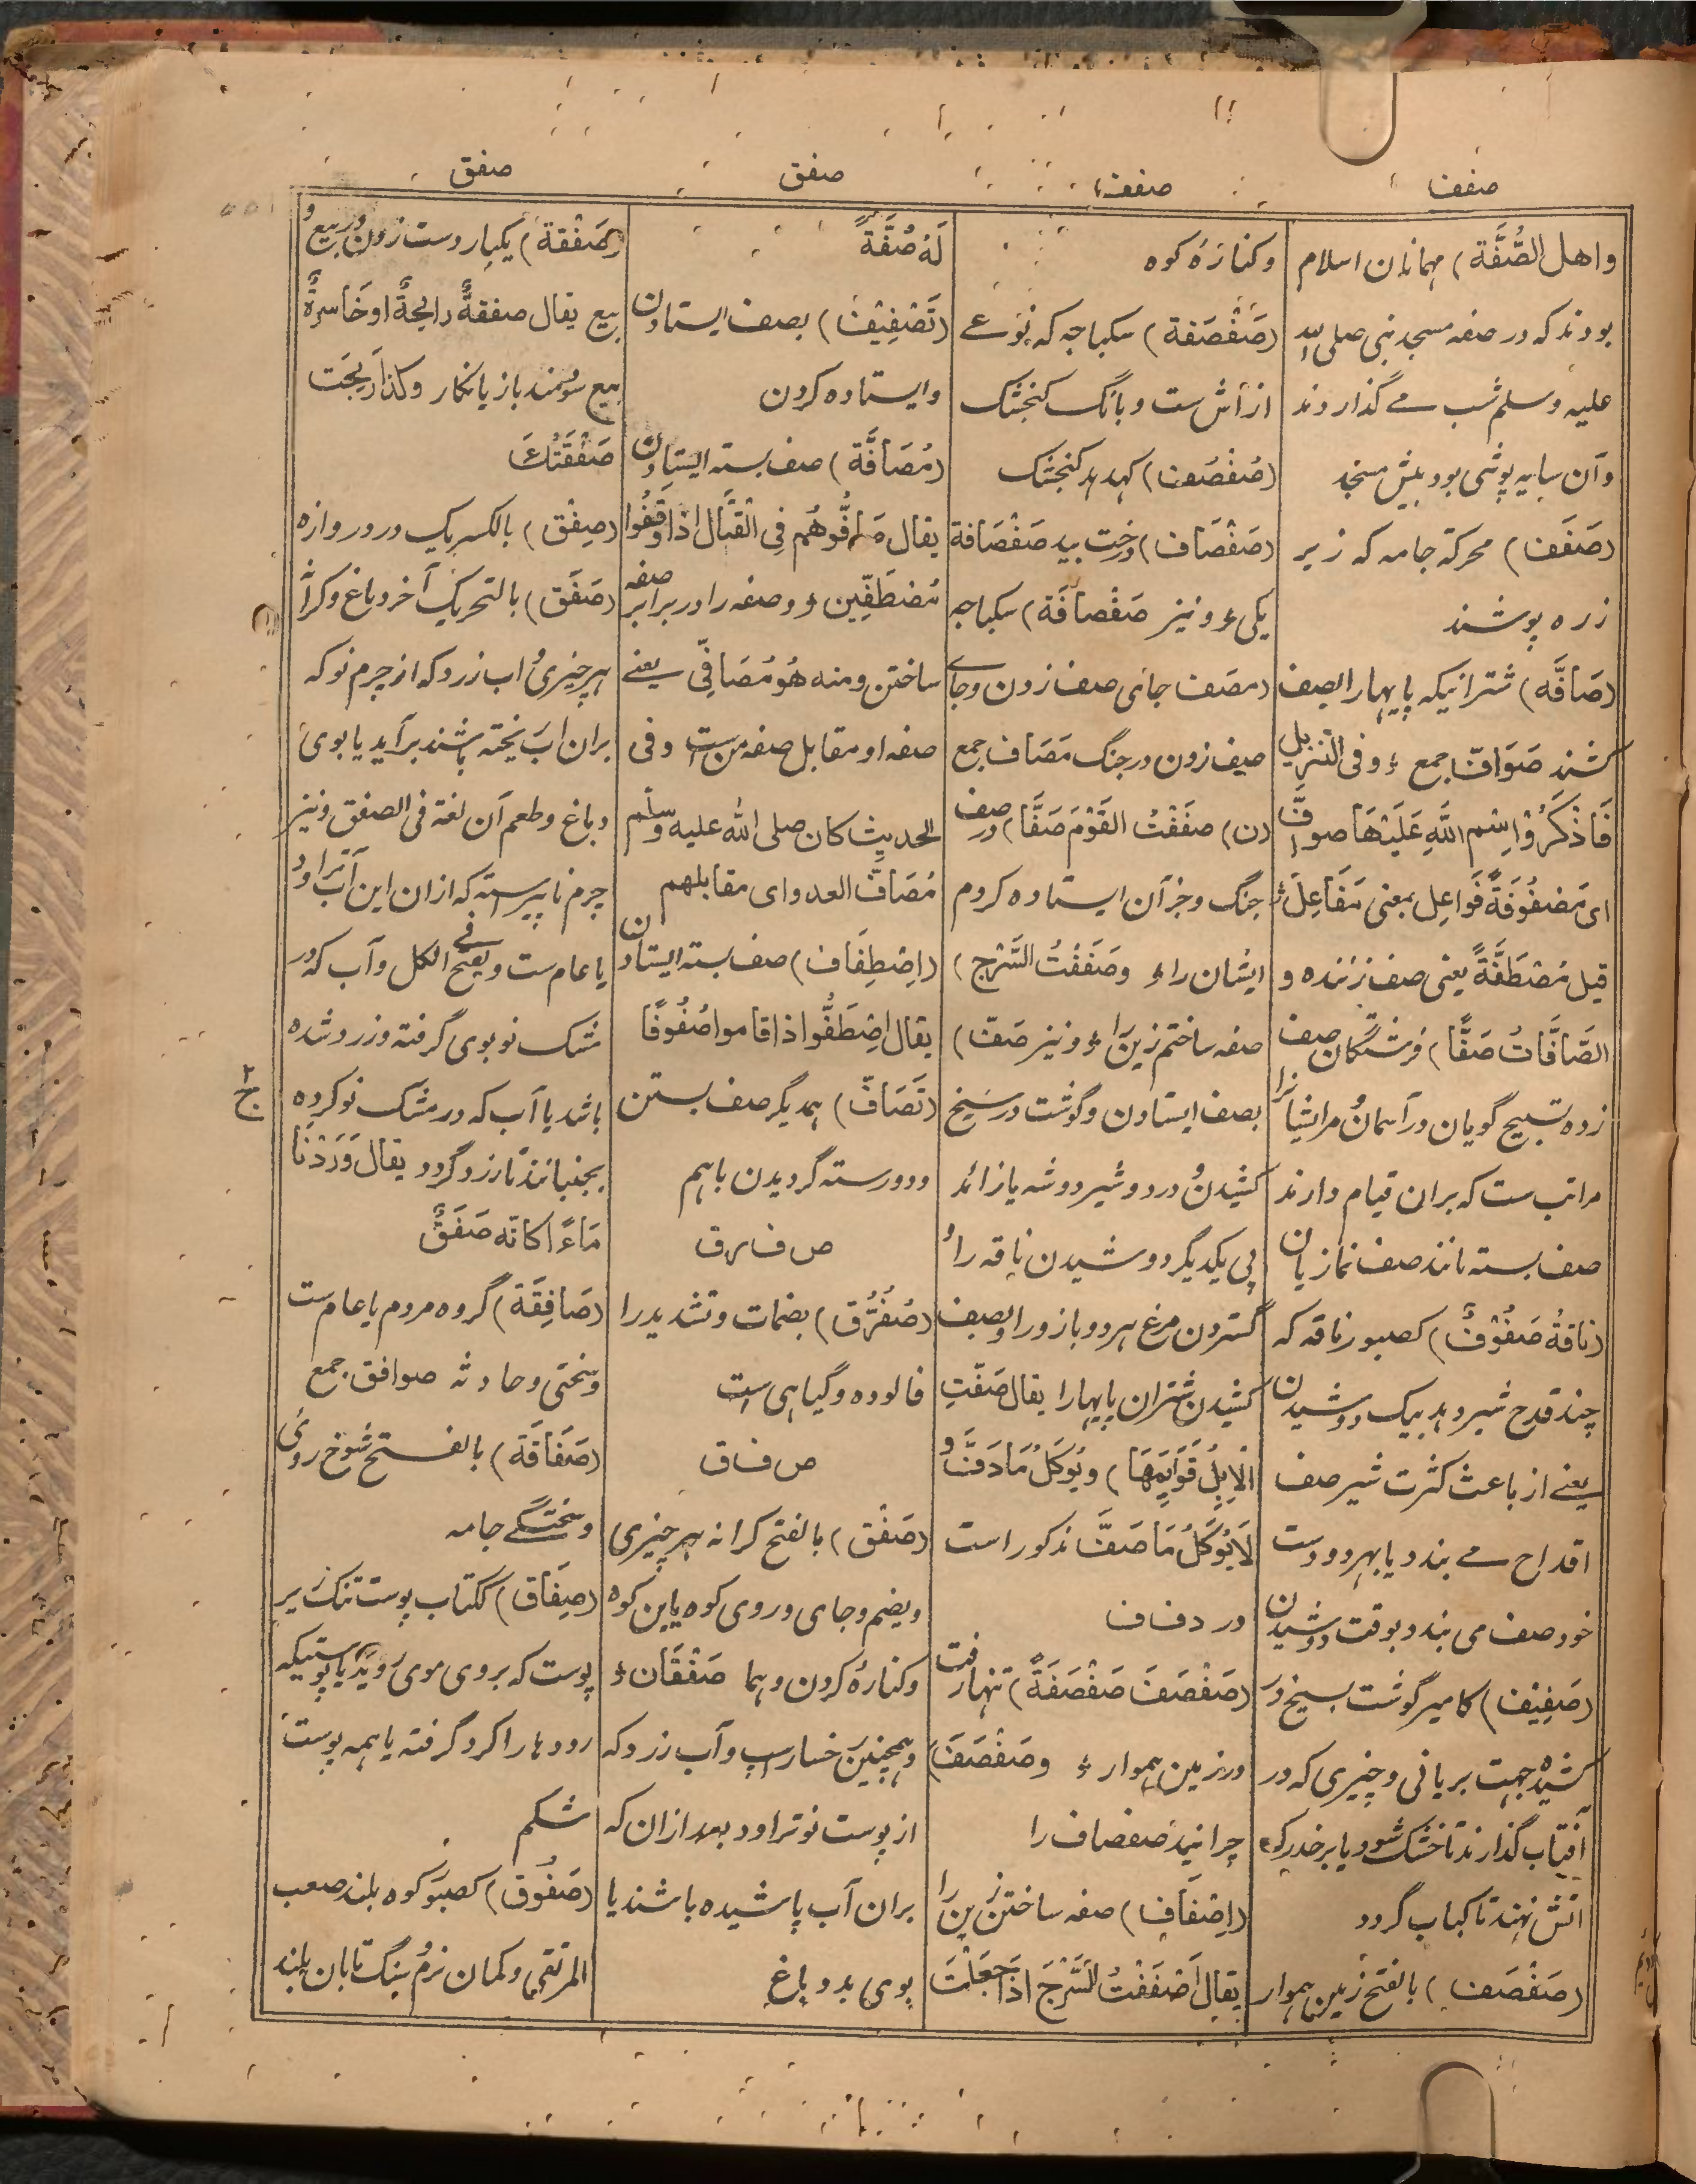 صفف
صفف
صفق
صفق
واهل الصُّفَّة) مهمانان اسلام
بودند که در صفه مسجد نبی صلی الله
علیه وسلم شب مے گذاردند
وآن سایه پوشی بود پیش مسجد
(صَفَف) محرکة جامه که زیر
زره پوشند
(صَافَّه) شترانیکه پایها را بصف
کشند صَوَافّ جمع ؛ وفی التنزیل
فَاذْكُرُوْا اسْمَ اللّٰهِ عَلَيْهَا صوافَّ
ای مَصْفُوفَةً فَوَاعِل بمعنی مَفَاعِلَ؛
قیل مُصْطَفَّةً یعنی صف زننده و
الصَّافَّاتُ صَفًّا) فرشتگان صف
زده تسبیح گویان در آسمان مر ایشانرا
مراتب ست که بران قیام دارند
صف بسته مانند صف نمازیان
(ناقةُ صَفُوْفٌ) کصبور ناقه که
چند قدح شیر دهد بیک دوشیدن
یعنے از باعث کثرت شیر صف
اقداح مے بندد یا بهر دو دست
خود صف می بندد بوقت دوشیدن
(صَفِیْف) کامیر گوشت بسیخ در
کشیده جهت بریانی وچیزی که در
آفتاب گذارند تا خشک شود یا بر خدرکه
اتش نهند تا کباب گردد
(صَفْصَف) بالفتح زمین هموار
وکنارۀ کوه
(صَفْصَفة) سکباجه که نوعے
از آش ست وبانگ کنجشک
(صُفْصُف) کهدهد کنجشک
(صَفْصَاف) درخت بید صَفْصَافة
یکی؛ ونیز صَفْصَافَة) سکباجه
(مصَف جای صف زدن وجاے
صیف زدن در جنگ مَصَاف جمع
(ن) صفَفْتُ القَوْمَ صَفًّا) در صف
جنگ وجز آن ایستاده کردم
ایشان را؛ وصَفَفْتُ السَّرْج)
صفه ساختم زین را؛ ونیز صَفّ)
بصف ایستادن وگوشت در سیخ
کشیدن ودر دو شیر دوشه یا زائد
پی یکدیگر دوشیدن ناقه را
گستردن مرغ هر دو بازو را وبصف
کشیدن شتران پایها را یقال صَفّتِ
الاِبِلُ قَوَایِمَهَا) ویُوكَلُ مَا دَفَّ و
لَا یُوكَلُ مَا صَفَّ مذکور است
در دفف
(صَفْصَفَ صَفْصَفَةً) تنها رفت
در زمین هموار؛ وصَفْصَفَ)
چرانید صفصاف را
(اِصْفَاف) صفه ساختن زین را
یقال اَصْفَفْتُ السَّرْجَ اذَا جَعَلْتَ
لَهُ صُفَّةً
(تَصْفِیْف) بصف ایستادن
وایستاده کردن
(مُصَافَّة) صف بسته ایستادن
یقال صَافُّوهُم فِی الْقِتَال اذا وَقَفُوا
مُصْطَفِّین؛ وصفه را در برابر صفه
ساختن ومنه هُوَ مُصَافِّی یعنے
صفه او مقابل صفه من ست وفی
الحدیث کان صلی الله علیه وسلم
مُصَافّ العدو ای مقابلهم
(اِصْطِفَاف) صف بسته ایستادن
یقال اِصْطَفُّوا اذا قاموا صُفُوفًا
(تَصَافّ) همدیگر صف بستن
ودو رسته گردیدن باهم
ص ف رق
(صُفُرُّق) بضمات وتشدید را
فالوده وگیاهی ست
ص ف ق
(صَفْق) بالفتح کرانه هر چیزی
ویضم وجای وروی کوه یا بن کوه
وکنارۀ گردن وهما صَفْقَان؛
وهمچنین خسار اسپ وآب زرد که
از پوست نو تراود بعد ازان که
بران آب پاشیده باشند یا
بوی بد دباغ
(صَفْقة) یکبار دست زدن در بیع و
بیع یقال صفقةٌ رابحةٌ او خَاسِرةٌ
بیع سودمند یا زیانکار وکذا رَبِحَت
صَفْقَتُكَ
(صِفْق) بالکسر یک در دروازه
(صَفَق) بالتحریک آخر دباغ وکرانه
هر چیزی واب زرد که از چرم نو که
بران اب ریخته باشند برآید یا بوی
دباغ وطعم آن لغة فی الصفق ونیز
چرم نا پیرسته که ازان این آب تراود
یا عام ست ویفتح فی الکل وآب که در
مشک نو بوی گرفته وزرد شده
باشد یا آب که در مشک نو کرده
بجنبانند تا زرد گردد یقال وَرَدْنَا
مَاءً كَانّه صَفَقٌ
(صَافِقَة) گروه مردم یا عام ست
وسختی وحادثه صوافق جمع
(صَفَاقَة) بالفتح شوخ روئی
وسختگے جامه
(صِفَاق) ککتاب پوست تنک زیر
پوست که بروی موی روید یا پوستیکه
رودها را گرد گرفته یا همه پوست
شکم
(صَفُوق) کصبور کوه بلند صعب
المرتقی وکمان نرم وسنگ تابان بلند
ج